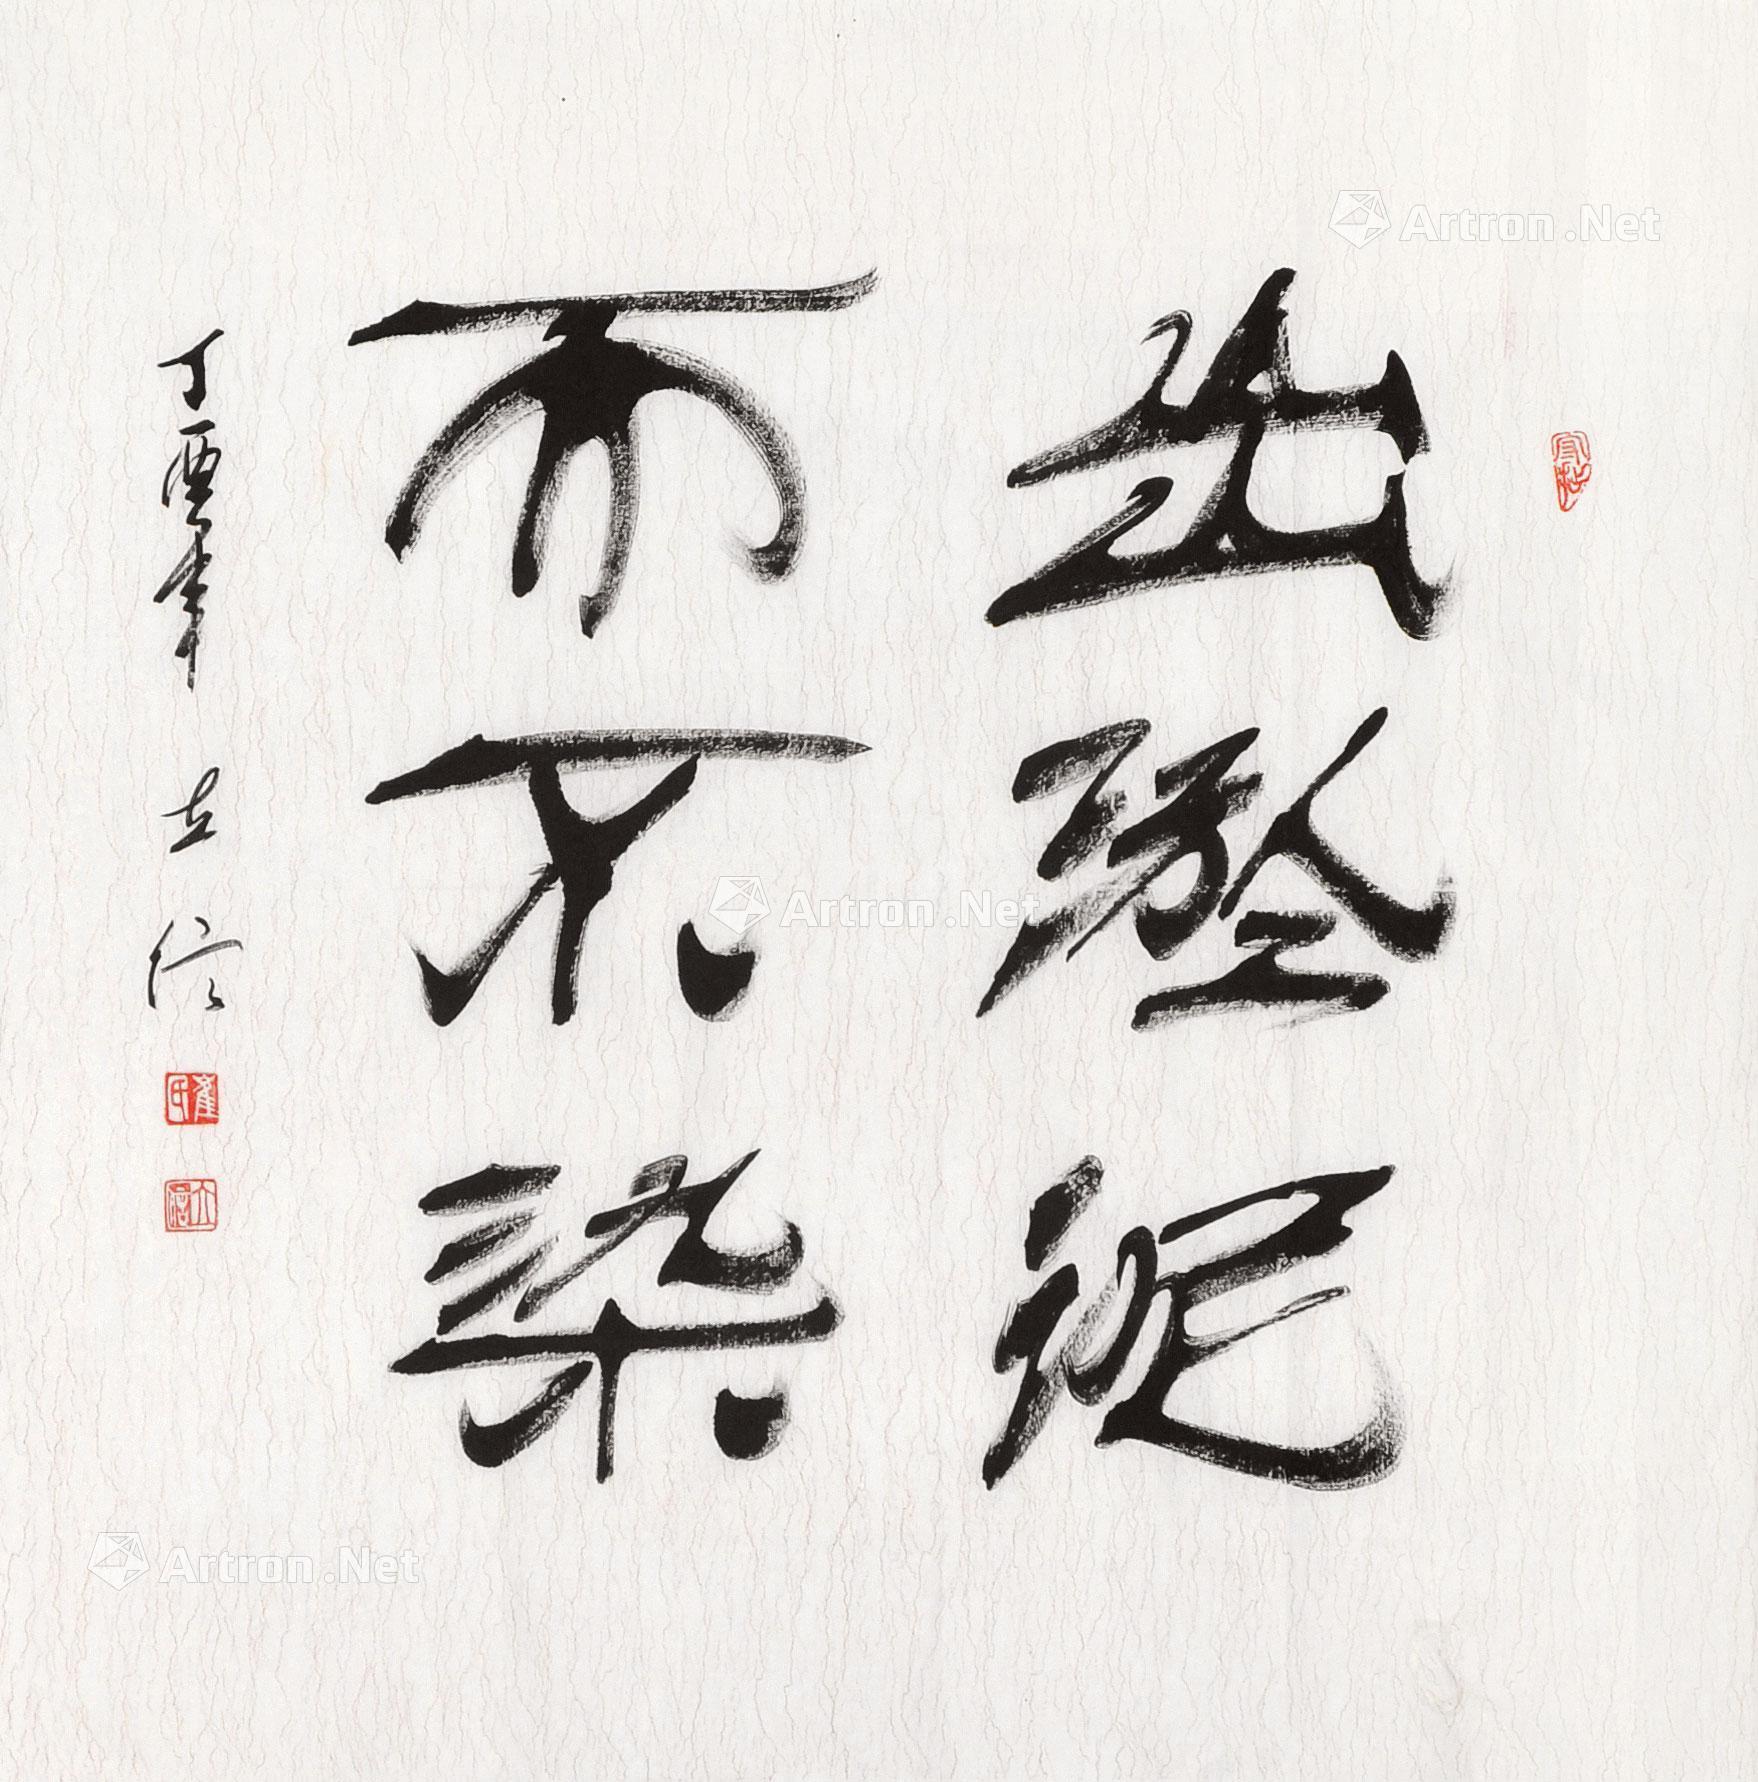 出淤泥
而不染
丁酉年 立信
崔氏
立信
Artron.Net
Artron.Net
Artron.Net